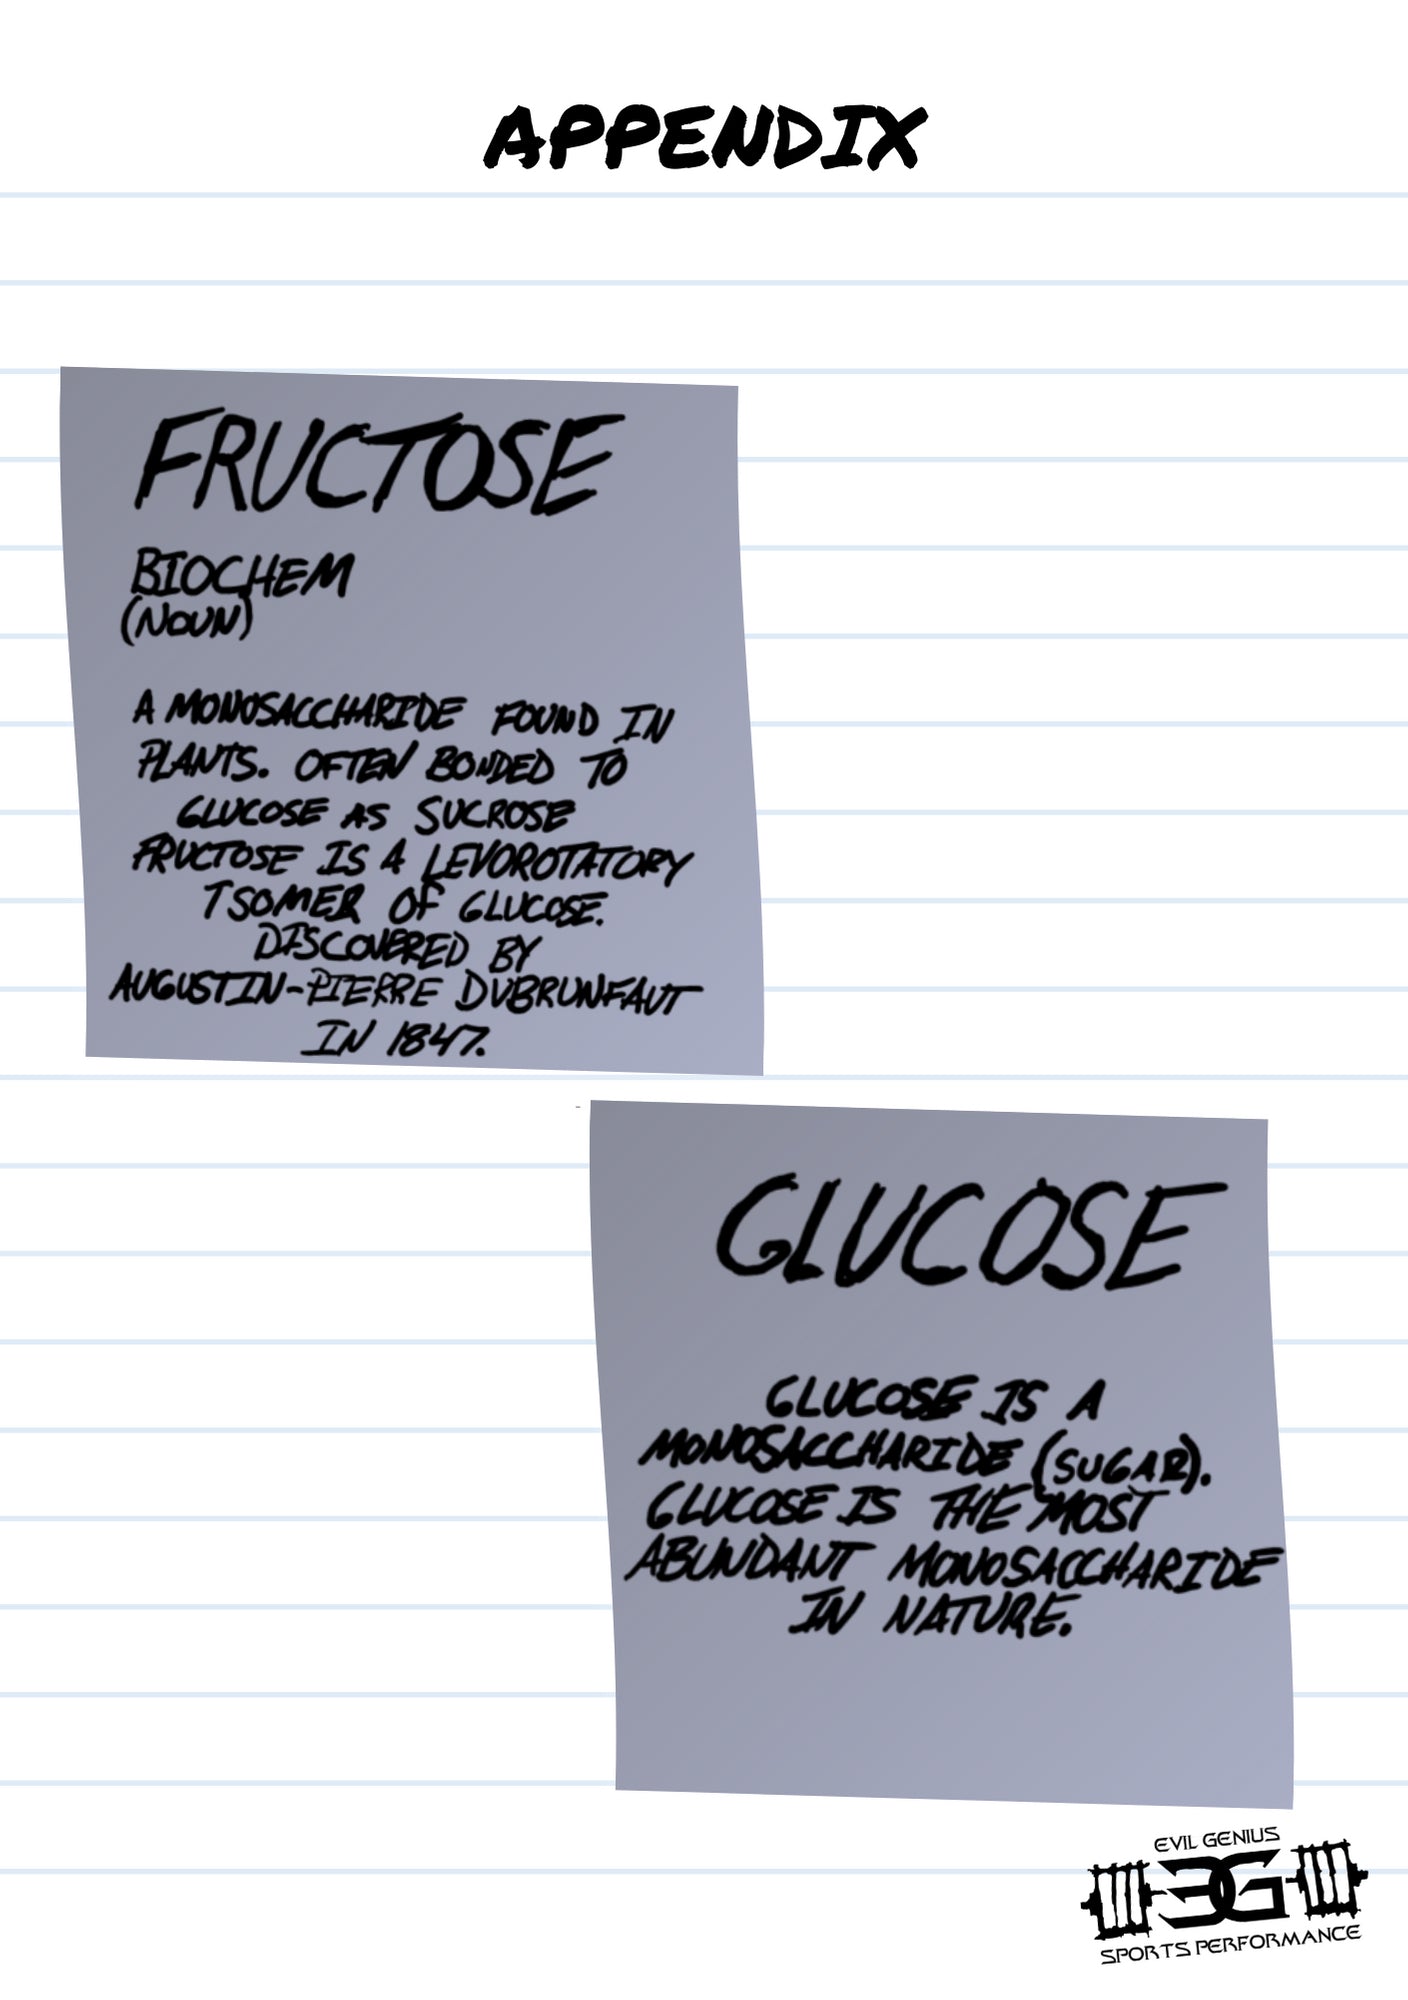 APPENDIX
FRUCTOSE
BIOCHEM
(NOUN)
A MONOSACCHARIDE FOUND IN
PLANTS. OFTEN BONDED TO
GLUCOSE AS SUCROSE
FRUCTOSE IS A LEVOROTATORY
TSOMER OF GLUCOSE.
DISCOVERED BY
AUGUSTIN-PIERRE DUBRUNFAUT
IN 1847.
GLUCOSE
GLUCOSE IS A
MONOSACCHARIDE (SUGAR).
GLUCOSE IS THE MOST
ABUNDANT MONOSACCHARIDE
IN NATURE.
EVIL GENIUS
EG
SPORTS PERFORMANCE